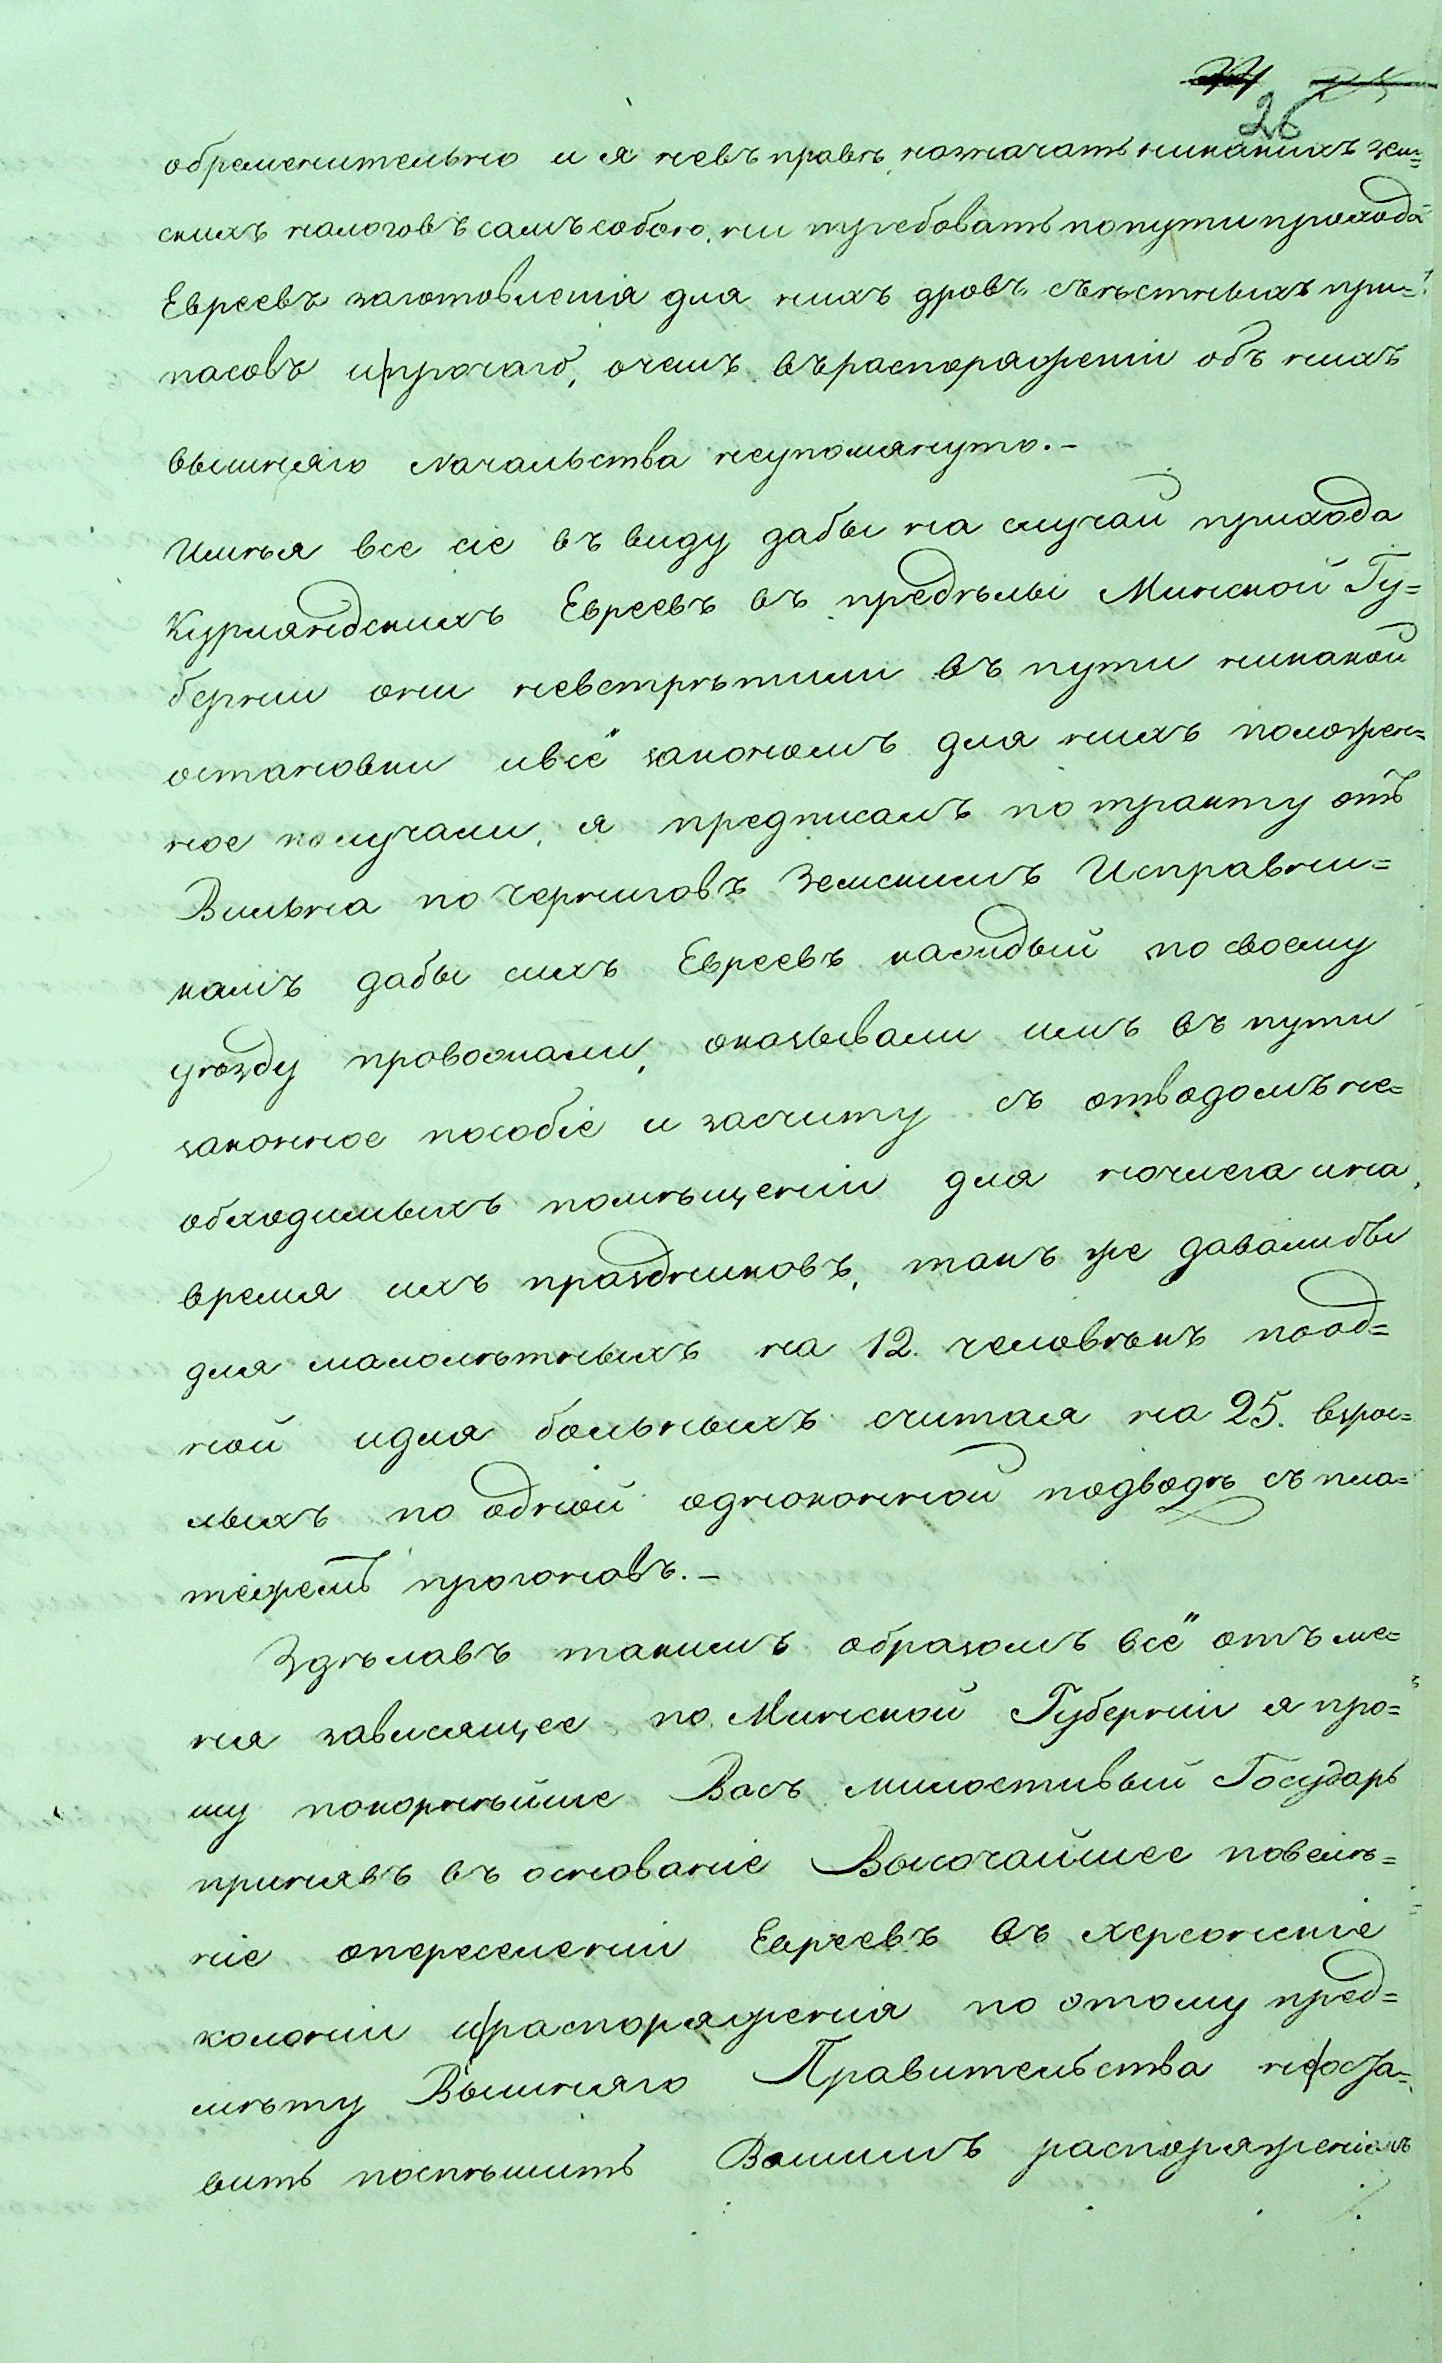 26
обременительно и я невъ правѣ, назначать никакихъ зем=
скихъ налоговъ самъ собою, ни требовать попути прохода
Евреевъ заготовленія для нихъ дровъ съѣстныхъ при=
пасовъ и прочаго, очемъ въраспоряженіи объ нихъ
вышняго Начальства неупомянуто.–
Имѣя все сіе въ виду дабы на случай прихода
Курляндскихъ Евреевъ въ предѣлы Минской Гу=
берніи они невстрѣтили въ пути никакой
остановки ивсё закономъ для нихъ положен=
ное получали, я предписалъ по тракту отъ
Вильна по Черниговъ Земскимъ Исправни=
камъ дабы сихъ Евреевъ каждый по своему
уѣзду провожали, оказывали имъ въ пути
законное пособіе и защиту съ отводомъ не=
обходимыхъ помѣщеніи для ночлега ина
время ихъ праздниковъ, такъ же давалибы
для малолѣтныхъ на 12. человѣкъ поод=
ной идля больныхъ считая на 25. взрос=
лыхъ по одной одноконной подводѣ съ пла=
тежемъ прогоновъ.–
Здѣлавъ такимъ образомъ всё отъ ме=
ня зависящее по Минской Губерніи я про=
шу покорнѣйше Васъ милостивый Государь
принявъ въ основаніе Высочайшее повелѣ=
ніе опереселеніи Евреевъ въ херсонскіе
колоніи и распоряженія по этому пред=
мѣту Вышняго Правительства не оста=
вить поспѣшить Вашимъ распоряженіемъ